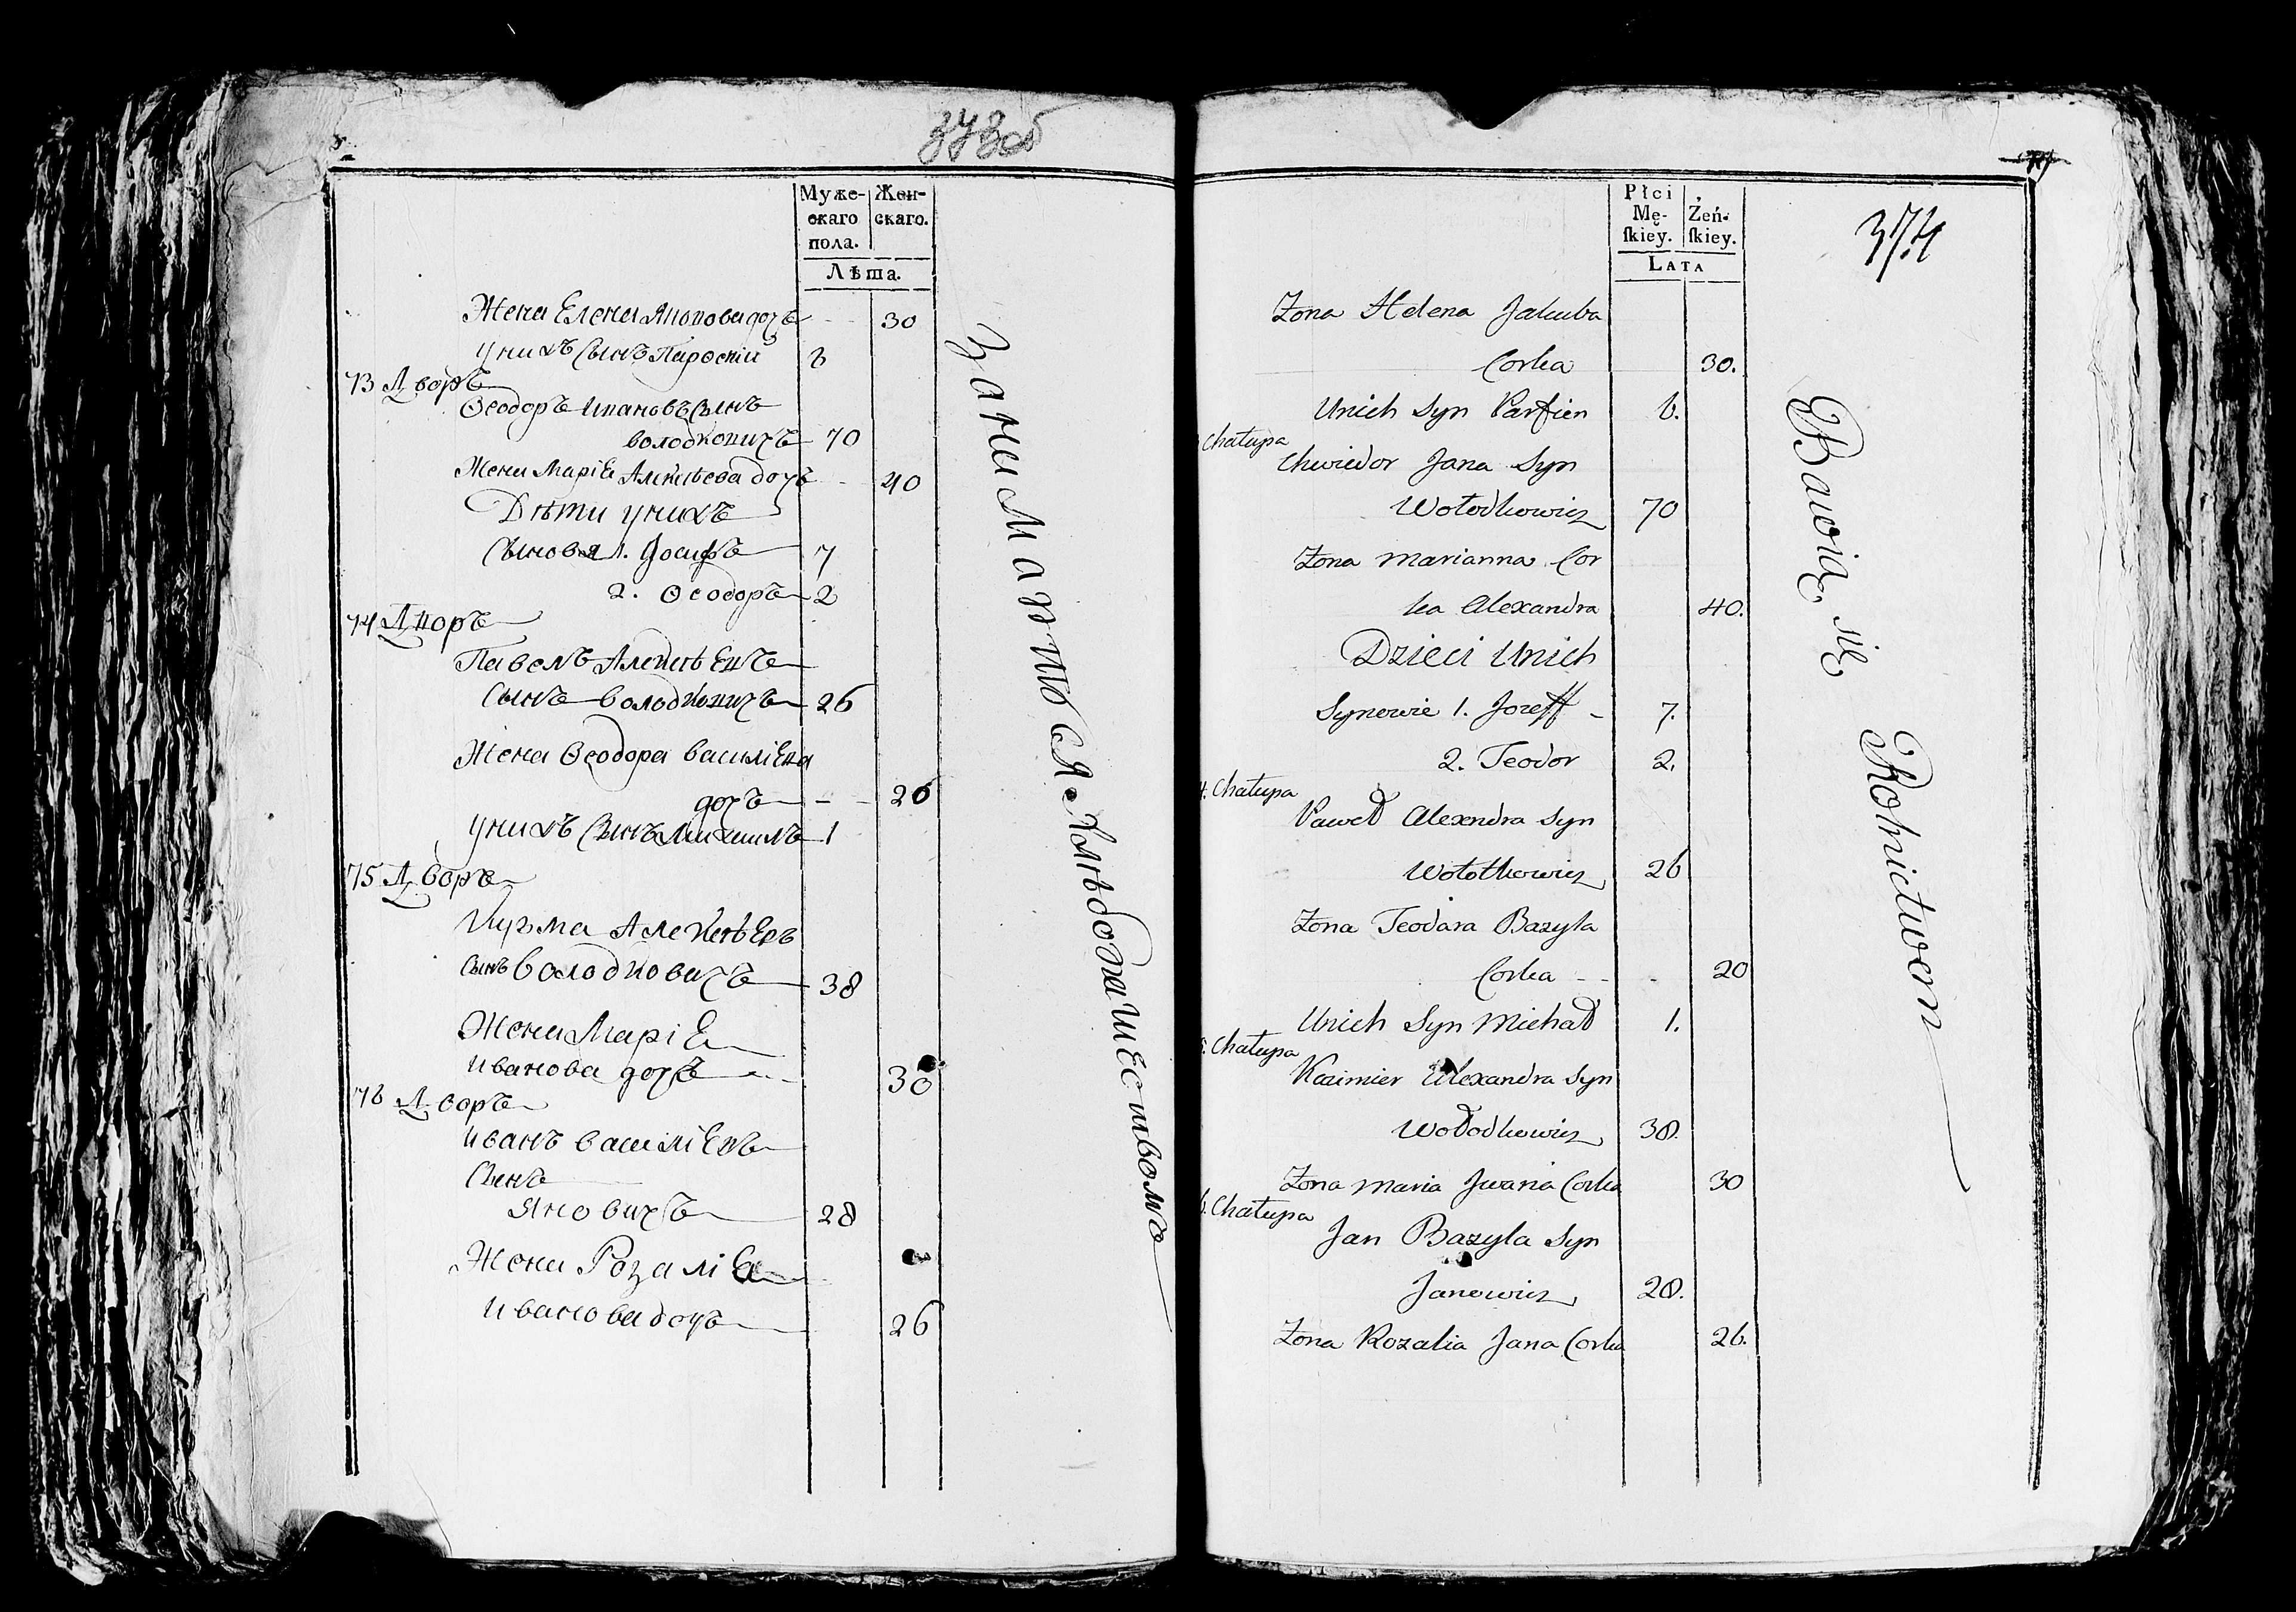 373об
Муже-
скаго
пола.
Жен-
скаго.
Лѣта.
Жена Елена Яковова дочь 30
у нихъ сынъ Парфенiй 6
73 Дворъ
Ѳеодоръ Ивановъ сынъ
Володковичъ 70
Жена Марiя Алексѣева дочь 40
Дѣти у нихъ
Сыновья 1. Iосифъ 7
2. Ѳеодоръ 2
74 Дворъ
Павелъ Алексѣевъ
сынъ Володковичъ 26
Жена Ѳеодора Василiева
дочь 20
у нихъ сынъ Михаилъ 1
75 Дворъ
Кузма Алексѣевъ
сынъ Володковичъ 38
Жена Марiя
Иванова дочь 30
76 Дворъ
Иванъ Василiевъ
сынъ
Яновичъ 28
Жена Розалiя
Иванова дочь 26
Занимаются хлѣбопашествомъ
374
Płci
Mę-
ſkiey.
Żeń-
ſkiey.
LATA
Żona Helena Jakuba
Corka 30.
Unich Syn Parfien 6.
Chałupa
Chwiedor Jana Syn
Wołodkowicz 70
Żona Marianna Cor
ka Alexandra 40.
Dzieci Unich
Synowie 1. Jozeff 7.
2. Teodor 2.
4. Chałupa
Paweł Alexndra Syn
Wołotkowicz 26
Żona Teodara Bazyla
Corka 20
Unich Syn Michał 1.
5. Chałupa
Kazimier Alexandra Syn
Wołodkowicz 38.
Żona Maria Jwana Corka 30
6. Chałupa
Jan Bazyla Syn
Janowicz 28.
Żona Rozalia Jana Corka 26.
Bawią się Rolnictwem